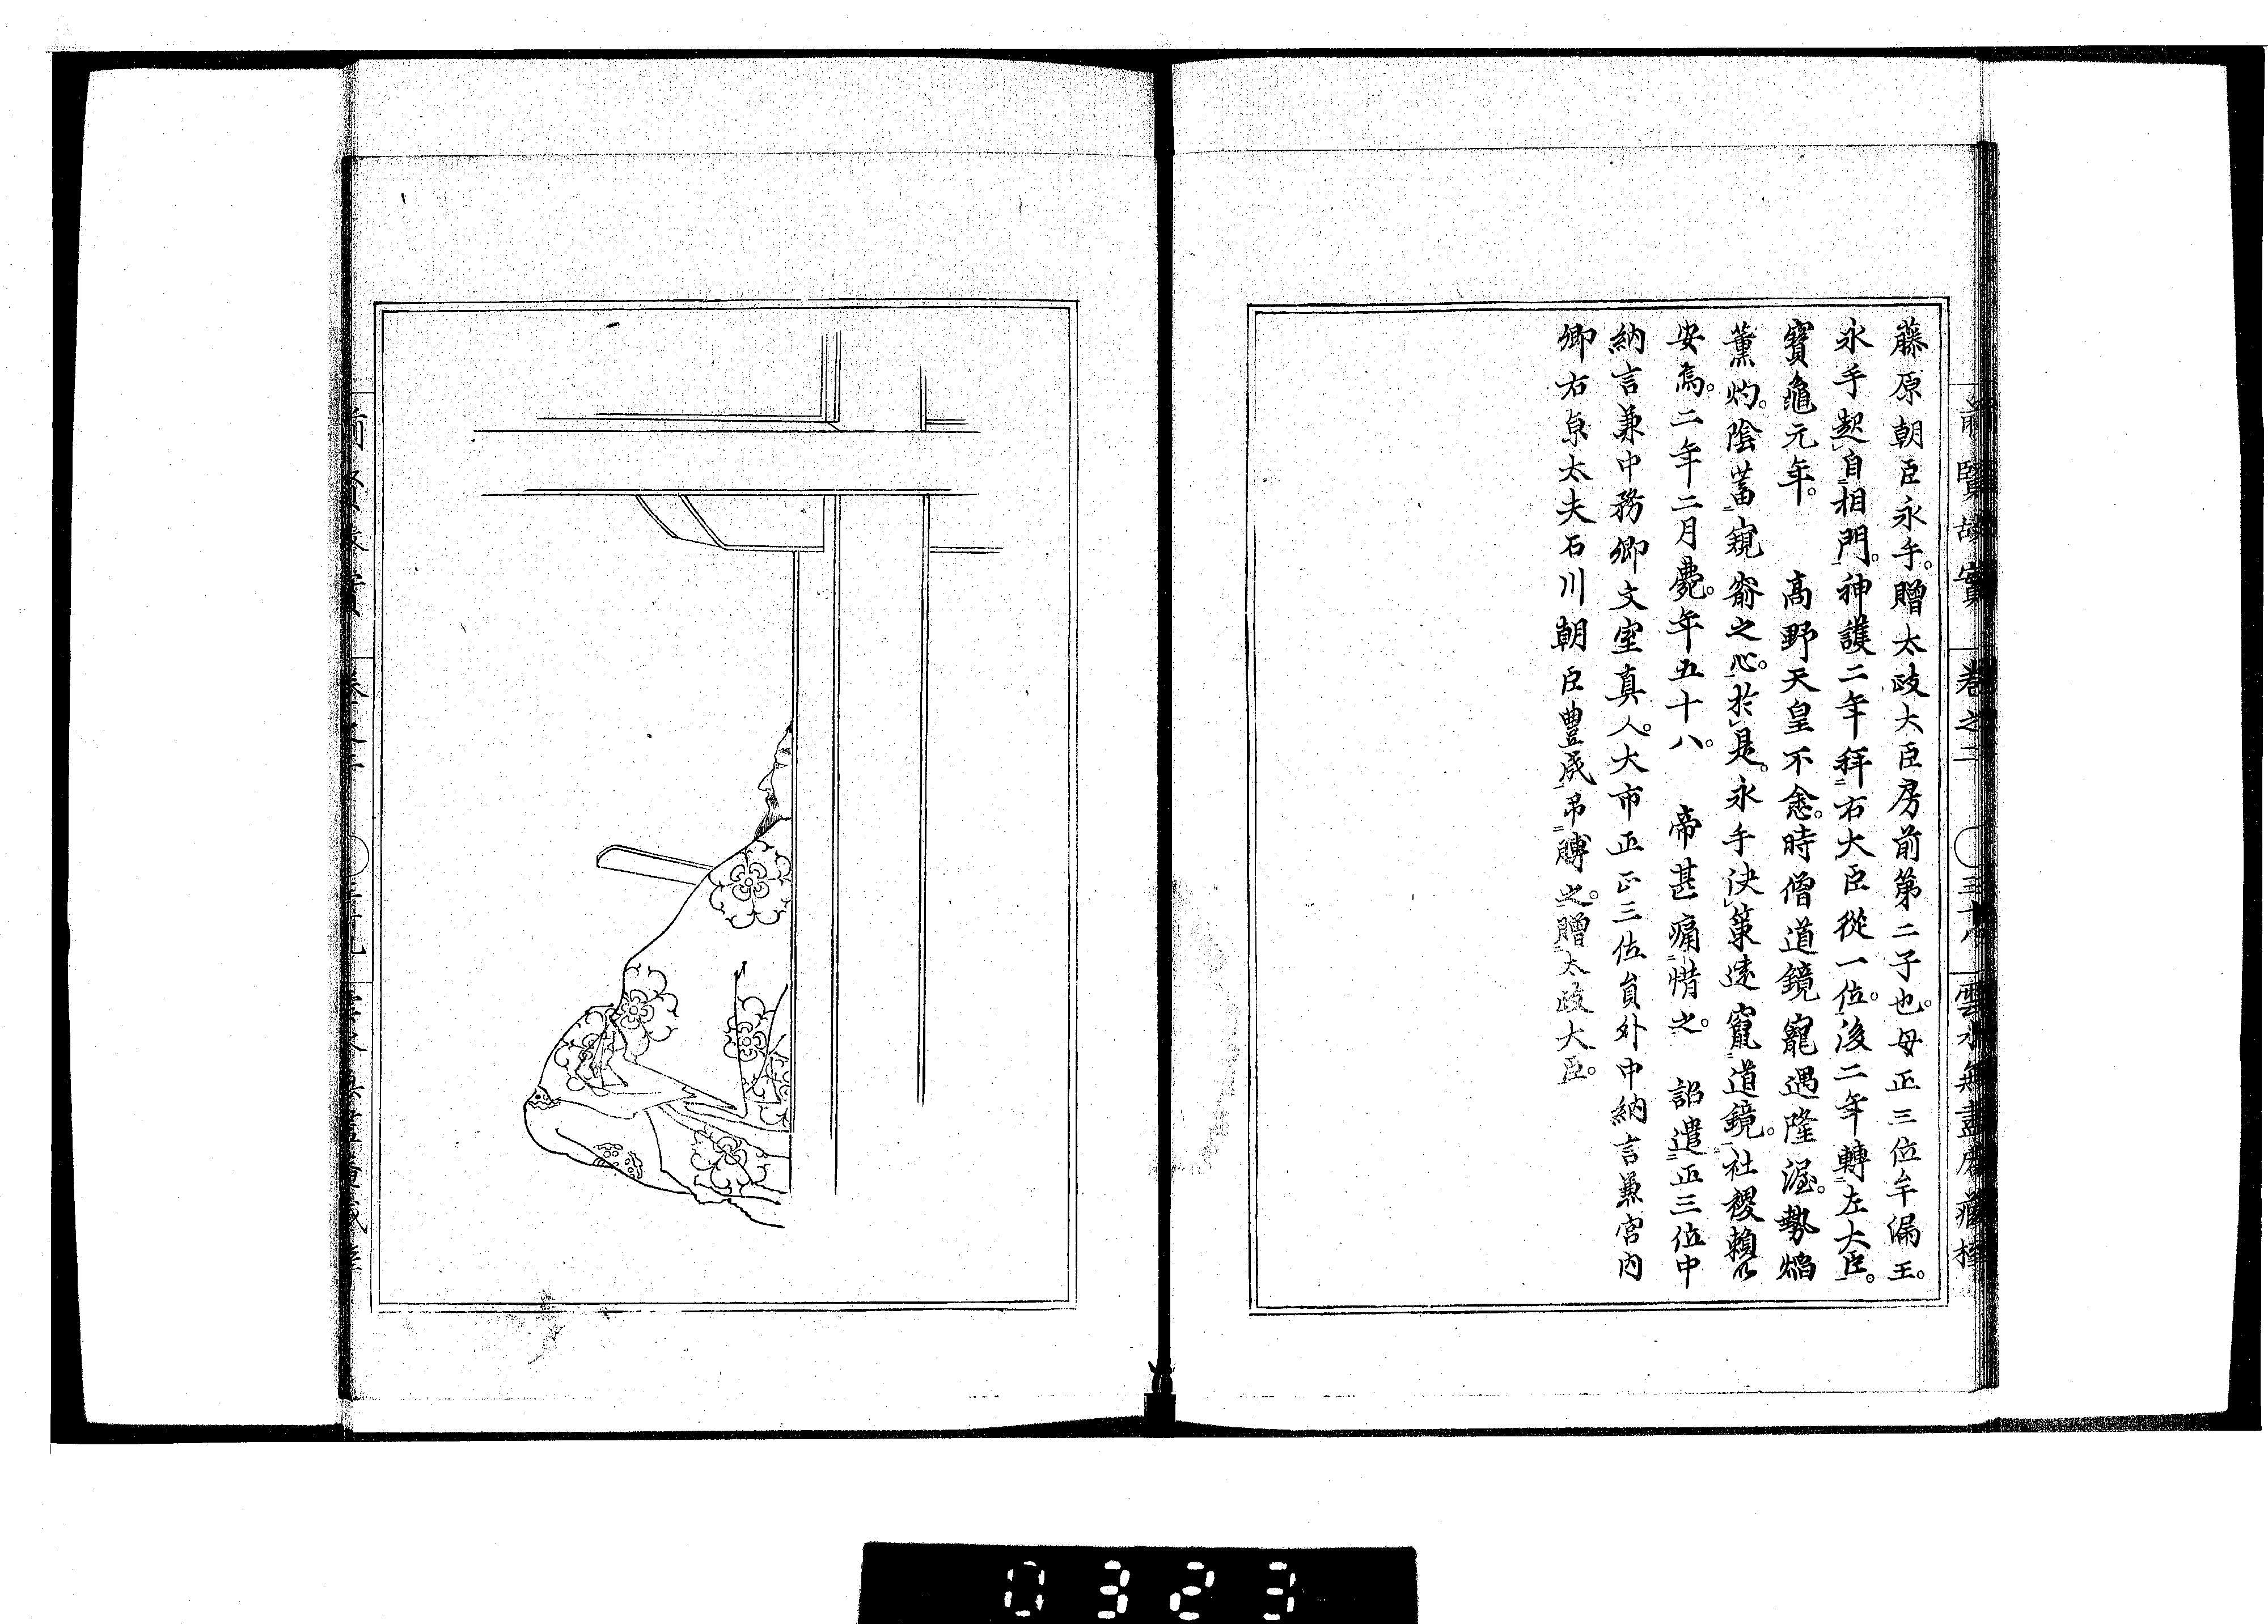 前賢故實 卷之二 三十八 雲水無盡庵藏梓
藤原朝臣永手。贈太政大臣房前第二子也。母正三位牟漏王。
永手起自相門。神護二年拜右大臣從一位。後二年轉左大臣。
寶龜元年。 高野天皇不悆。時僧道鏡寵遇隆渥。勢焰
薰灼。陰蓄窺窬之心。於是。永手決策遠竄道鏡。社稷賴以
安焉。二年二月薨。年五十八。 帝甚痛惜之。 詔遣正三位中
納言兼中務卿文室真人。大市正正三位員外中納言兼宮內
卿右京太夫石川朝臣豐成弔賻之。贈太政大臣。
0323